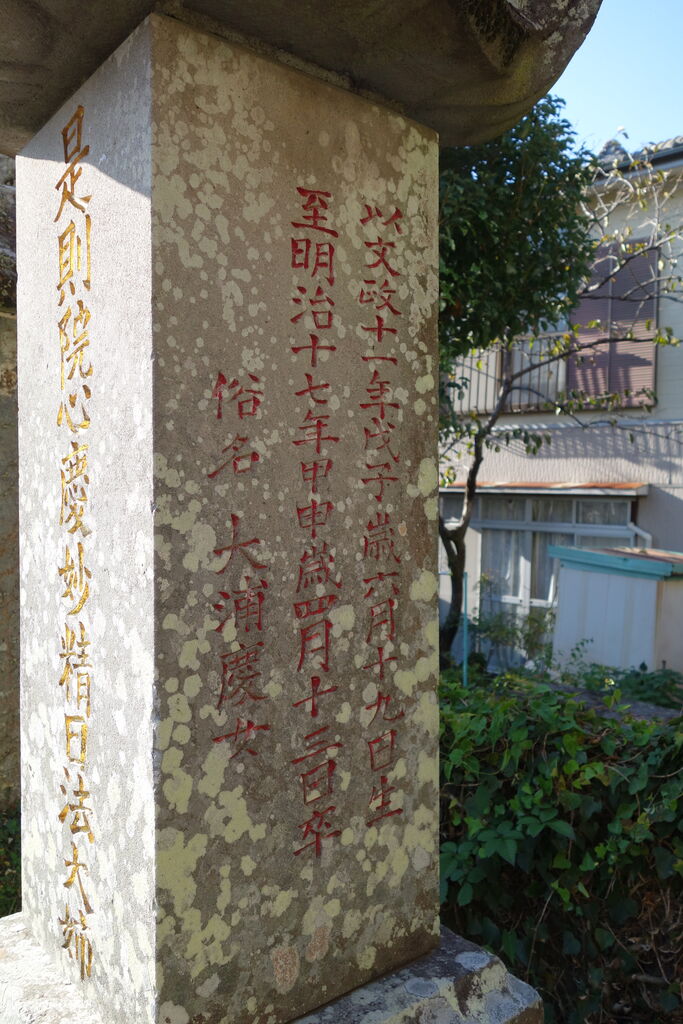 以文政十一年戊子歳六月十九日生
至明治十七年甲申歳四月十三日卒
俗名 大浦慶女
是則院心慶妙精日法大姉